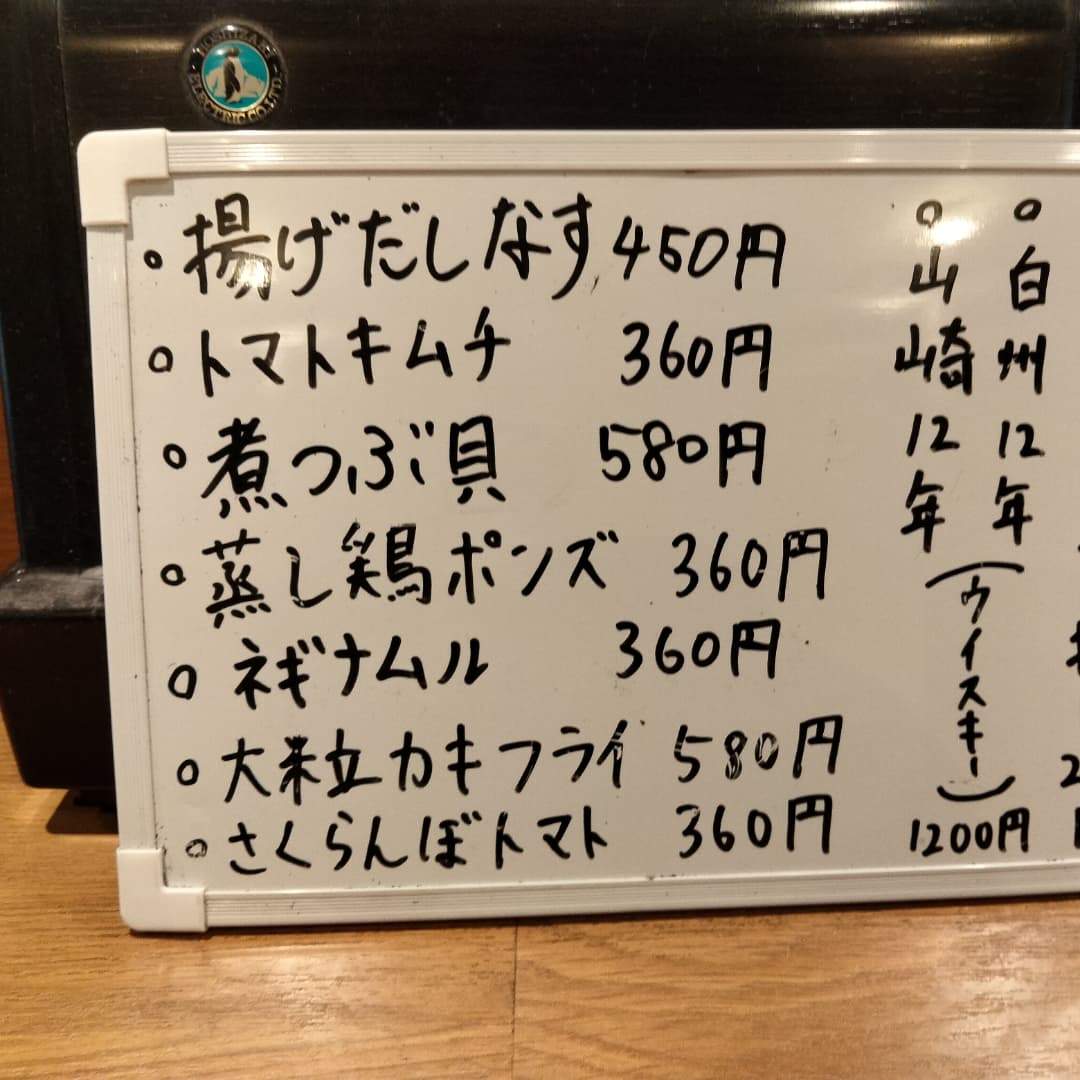 HOSHIZAKI
ELECTRIC CO.LTD.
。揚げだしなす 450円
。トマトキムチ 360円
。煮つぶ貝 580円
。蒸し鶏ポンズ 360円
。ネギナムル 360円
。大粒カキフライ 580円
。さくらんぼトマト 360円
。白州12年
。山崎12年
(ウイスキー)
1200円